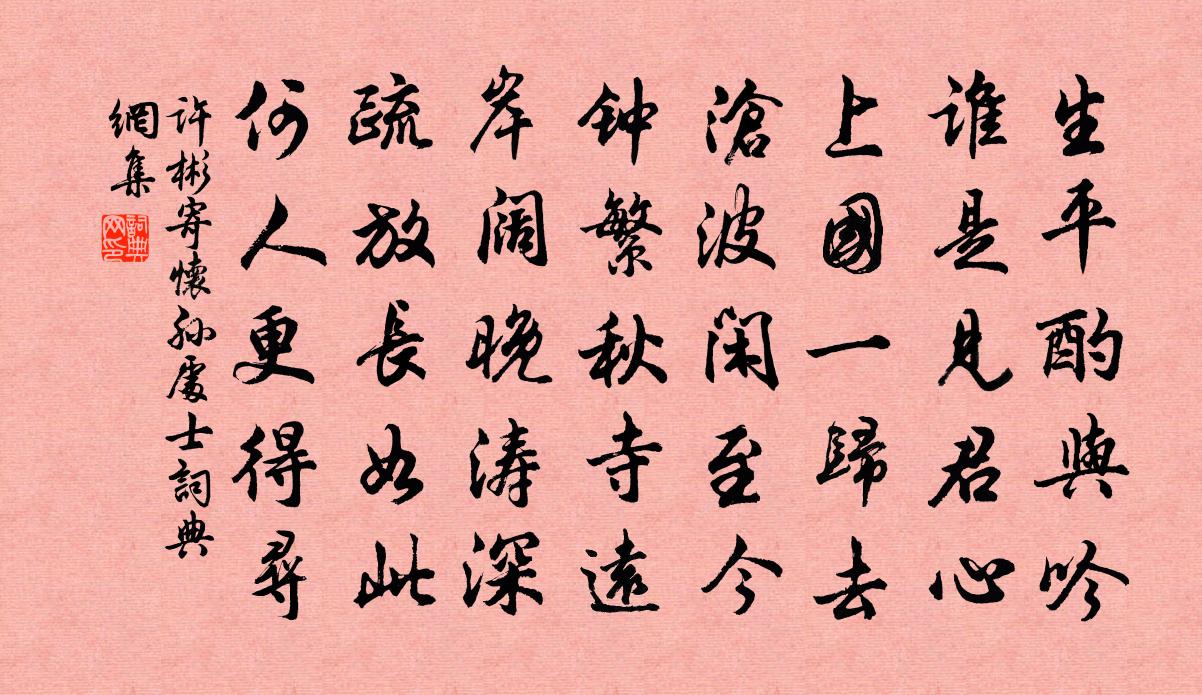 生平酌與吟
誰是見君心
上國一歸去
滄波閑至今
钟繁秋寺遠
岸阔晚涛深
疏放長如此
何人更得尋
许彬寄懷孙處士詞典
網集
詞典网印